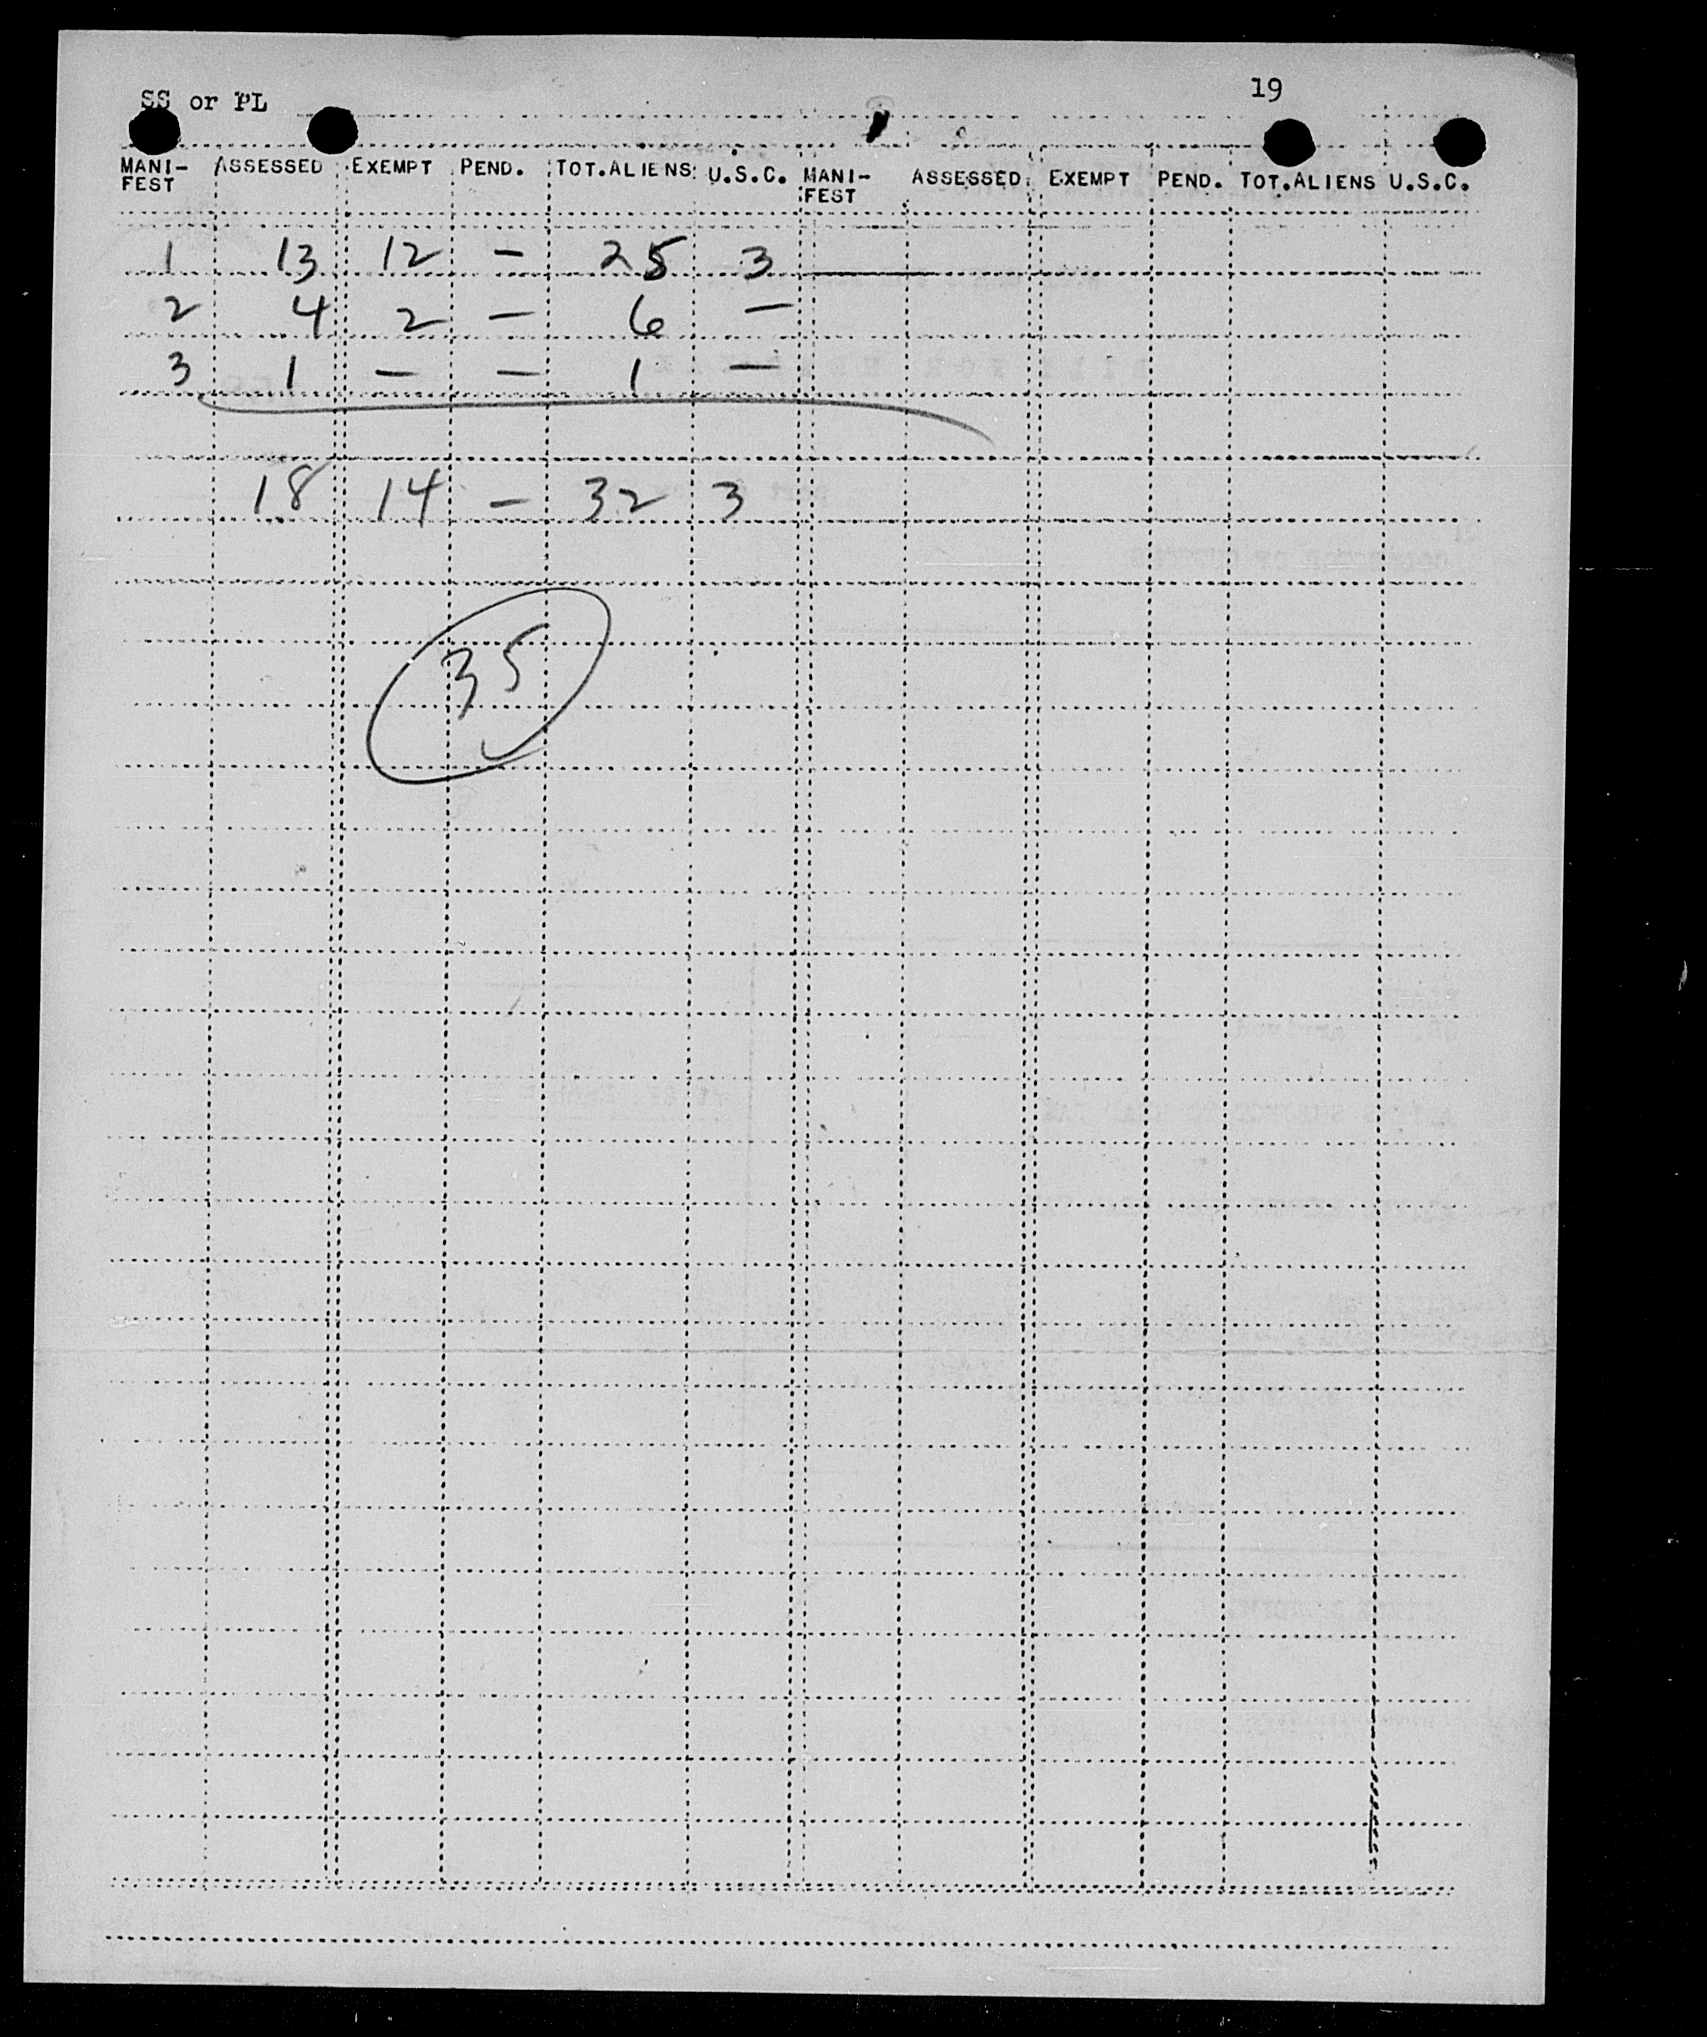 SS or PL 19
MANI-FEST ASSESSED EXEMPT PEND. TOT.ALIENS U.S.C. MANI-FEST ASSESSED EXEMPT PEND. TOT.ALIENS U.S.C.
1 13 12 - 25 3
2 4 2 - 6 -
3 1 - - 1 -
18 14 - 32 3
35